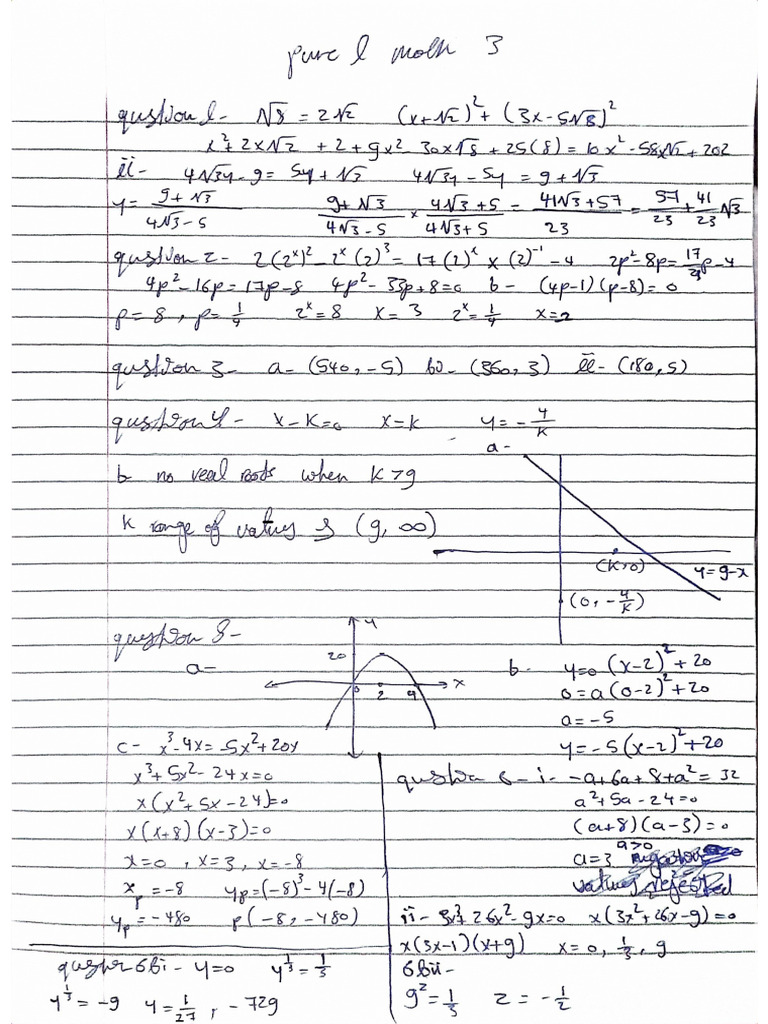 pure 1 math 3
question 1- √8 = 2√2 (x+√2)² + (3x-5√8)²
x²+2x√2 + 2 + 9x² - 30x√8 + 25(8) = 10x² - 58x√2 + 202
ii- 4√3y - 9 = 5y + √3 4√3y - 5y = 9 + √3
y = (9+√3)/(4√3-5) (9+√3)/(4√3-5) × (4√3+5)/(4√3+5) = (41√3+57)/23 = 57/23 + 41/23 √3
question 2- 2(2ˣ)² - 2ˣ(2)³ = 17(2)ˣ × (2)⁻¹ - 4 2p²-8p = 17/2 p - 4
4p² - 16p = 17p - 8 4p² - 33p + 8 = 0 b- (4p-1)(p-8) = 0
p = 8, p = 1/4 2ˣ = 8 x = 3 2ˣ = 1/4 x = -2
question 3- a- (540, -5) bi- (360, 3) ii- (180, 5)
question 4- x-k=0 x=k y = -4/k
a-
b- no real roots when k>9
k range of values is (9, ∞)
(k,0) y=9-x
(0, -4/k)
question 5-
a-
y
20
0 2 4 x
b- y=a(x-2)²+20
0=a(0-2)²+20
a=-5
y=-5(x-2)²+20
c- x³-4x = -5x²+20x
x³+5x²-24x=0
x(x²+5x-24)=0
x(x+8)(x-3)=0
x=0, x=3, x=-8
xₚ=-8 yₚ=(-8)³-4(-8)
yₚ=-480 p(-8, -480)
question 6-i- -a+6a+8+a²=32
a²+5a-24=0
(a+8)(a-3)=0
a>0
a=3 negative
values rejected
ii- 3x³+26x²-9x=0 x(3x²+26x-9)=0
x(3x-1)(x+9) x=0, 1/3, 9
question 6bi- y=0 y^(1/3) = 1/3
y^(1/3) = -9 y = 1/27, -729
6bii-
9^z = 1/3 z = -1/2